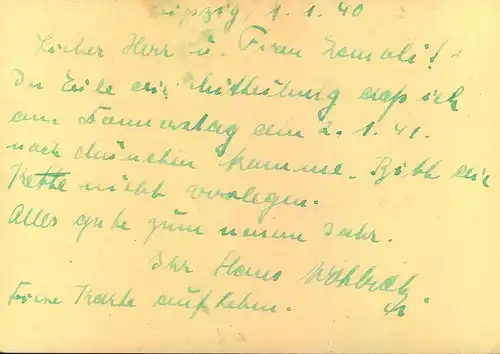 Leipzig, 1.1.40
Lieber Herr u. Frau
In Eile die Mitteilung daß ich
am Donnerstag den 2.1.41.
nach München komme. Bitte die
Kette nicht vorlegen.
Alles gute zum neuen Jahr.
Ihr Hans
Karte aufheben.